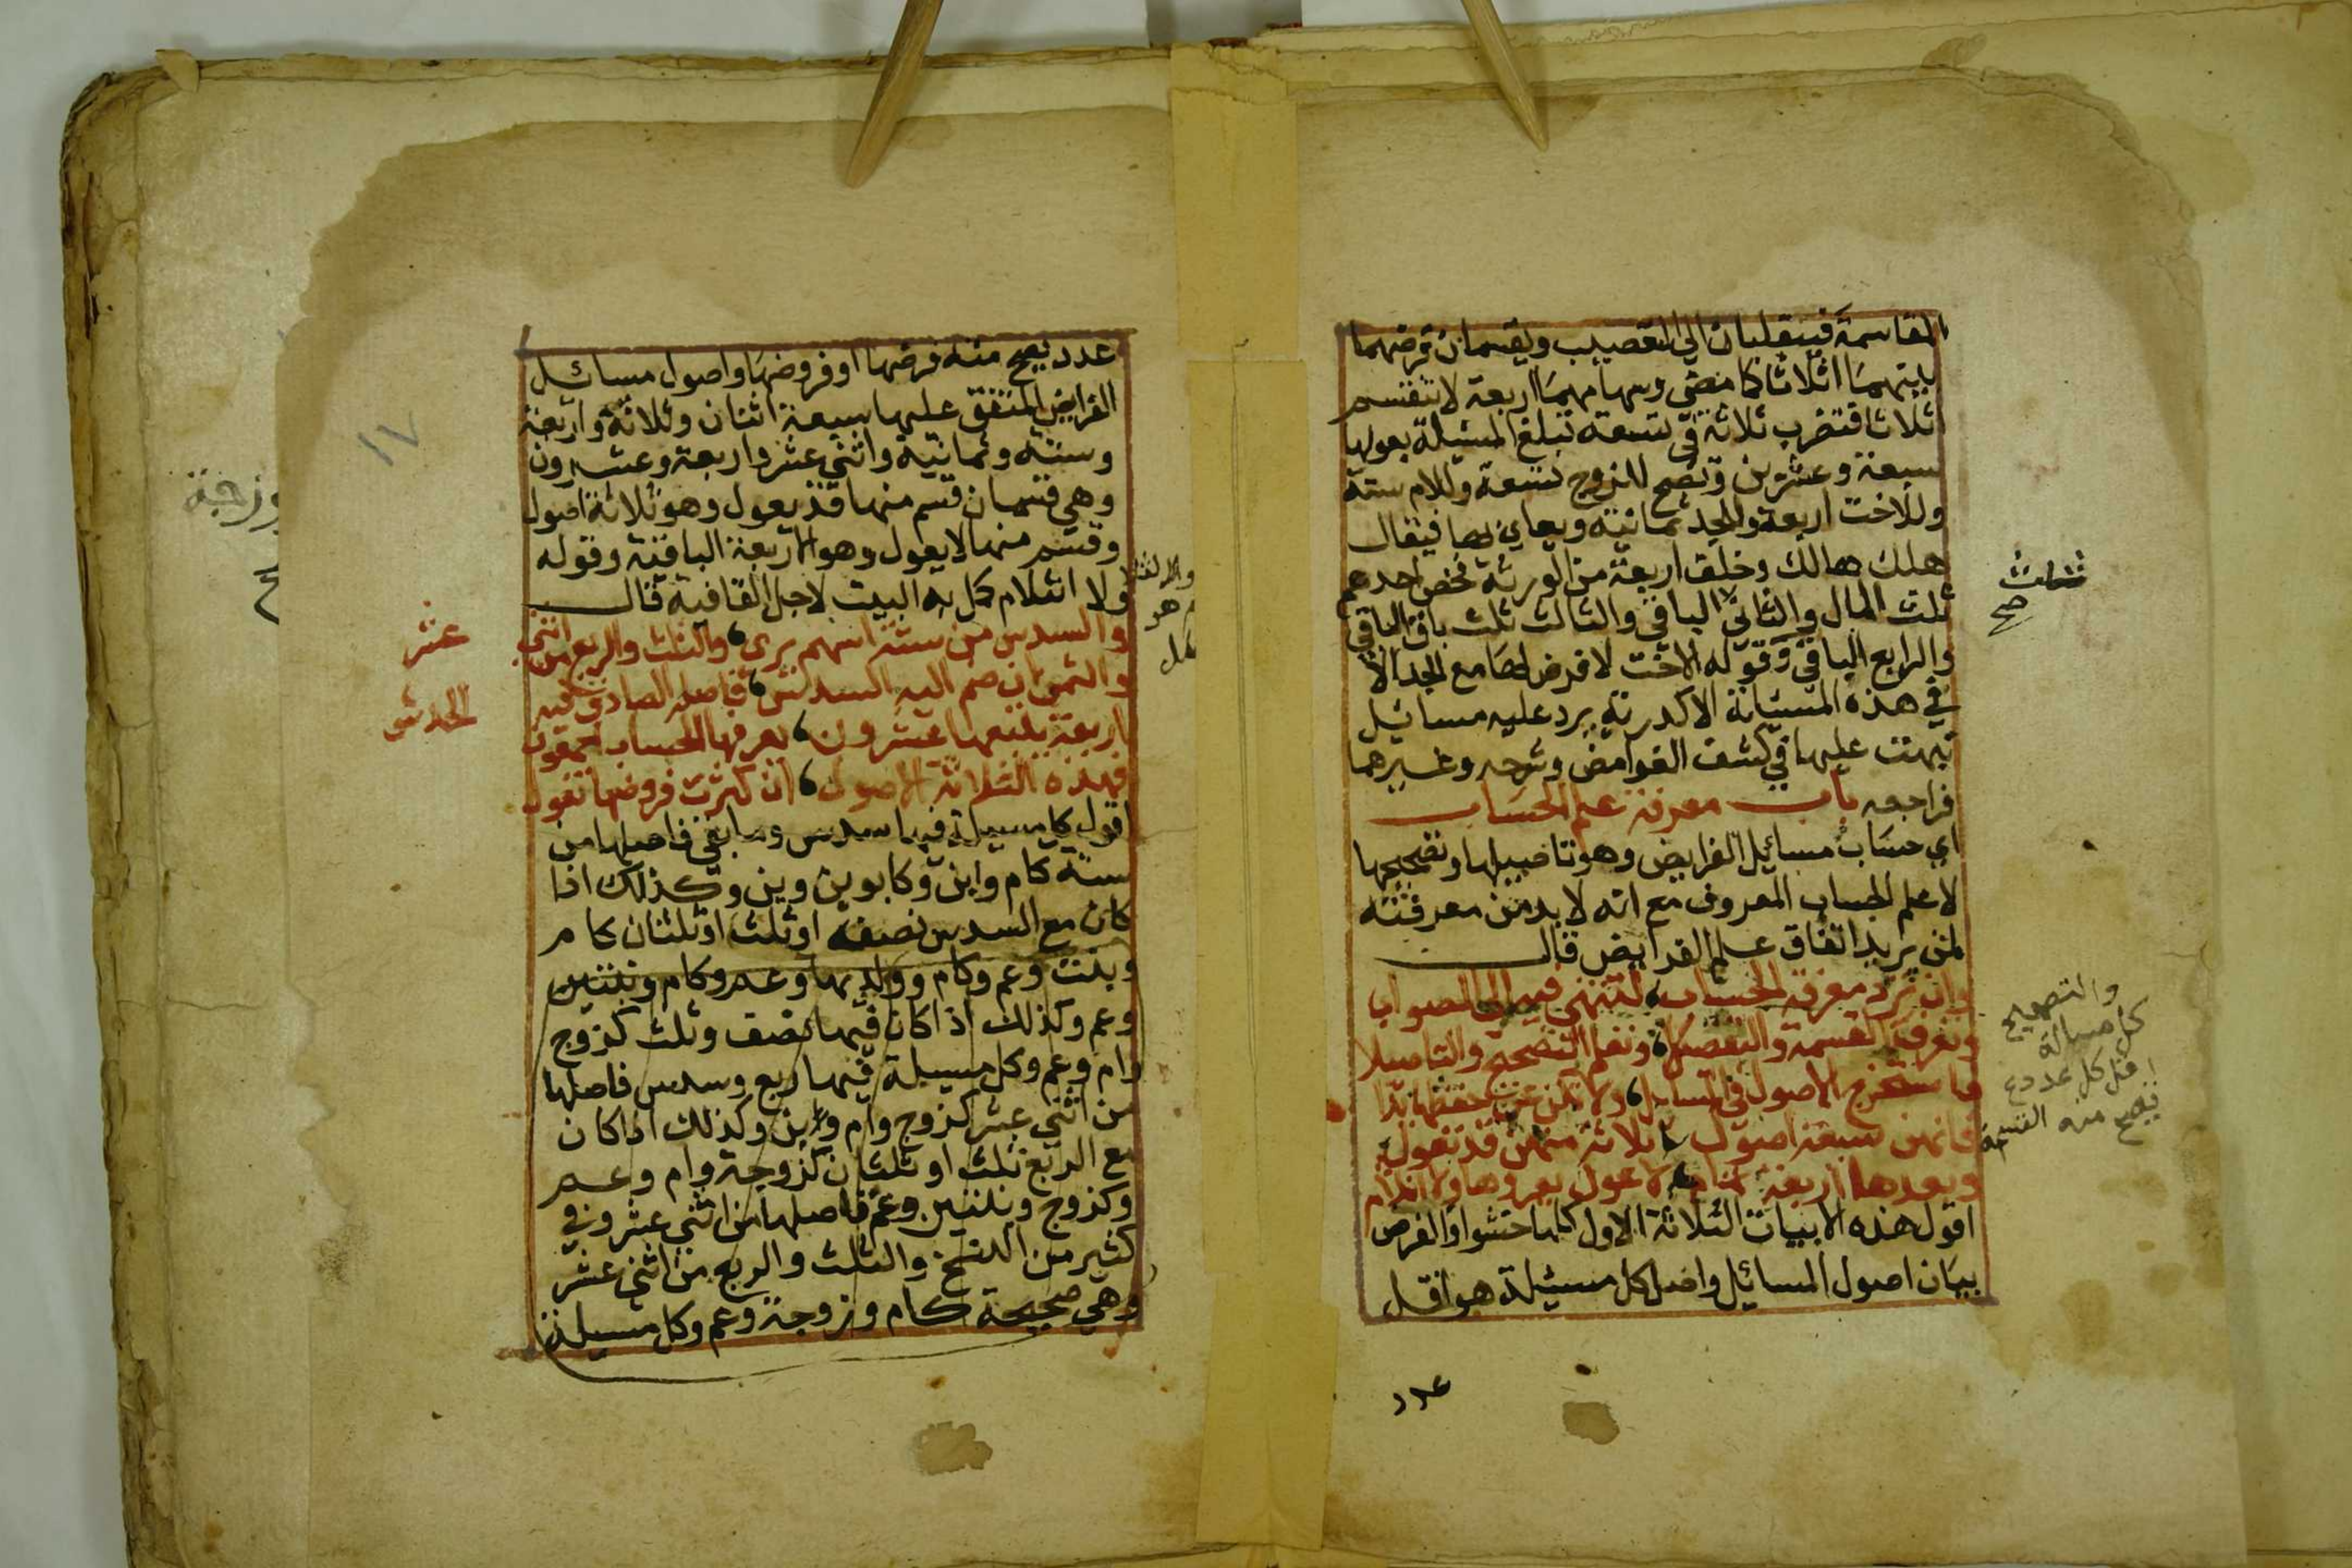 المقاسمة فينقلبان الى التعصيب ويقسمان فرضهما
بينهما اثلاثا كما مضى وسهامهما اربعة لا تنقسم
اثلاثا فتضرب ثلاثة في تسعة تبلغ المسئلة بعولها
سبعة وعشرين وتصح للزوج تسعة وللام ستة
وللاخت اربعة وللجد ثمانية ويعايى بها فيقال
هلك هالك وخلف اربعة من الورثة فخص احدهم
ثلث المال والثاني الباقي والثالث ثلث باقي الباقي
والرابع الباقي وقوله الاخت لا فرض لها مع الجد الا
في هذه المسئلة الاكدرية يرد عليه مسائل
نبهت عليها في كشف الغوامض وشرحه وغيرهما
فراجعه باب معرفة علم الحساب
اي حساب مسائل الفرايض وهو تاصيلها وتصحيحها
لا علم الحساب المعروف مع انه لا بد من معرفته
لمن يريد اتقان علم الفرايض قال
وان ترد معرفة الحساب لتنتهي فيه الى الصواب
وتعرف القسمة والتفصيلا وتعلم التصحيح والتاصيلا
فاستخرج الاصول في المسايل ولا تكن عن حفظها بذا
فانهن سبعة اصول ثلاثة منهن قد تعول
وبعدها اربعة تمام لا عول يعروها ولا انثلام
اقول هذه الابيات الثلاثة الاول كلها حشو والغرض
بيان اصول المسائل واصل كل مسئيلة هو اقل
عدد
ثلث
صح
والتصحيح
كل مسالة
اقل كل عدد
تصح منه القسمة
عدد يصح منه فرضها او فروضها واصول مسائل
الفرايض المتفق عليها سبعة اثنان وثلاثة واربعة
وستة وثمانية واثني عشر واربعة وعشرون
وهي قسمان قسم منها قد يعول وهو ثلاثة اصول
وقسم منها لا يعول وهو الاربعة الباقية وقوله
ولا انثلام كمل به البيت لاجل القافية قال
والسدس من ستة اسهم يرى والثلث والربع من اثني
عشر
والثمن ان ضم اليه السدس فاصله الصادق فيه
الحدس
اربعة يتبعها عشرون يعرفها الحساب اجمعون
فهذه الثلاثة الاصول ان كثرت فروضها تعول
اقول كل مسيلة فيها سدس وما بقي فاصلها من
ستة كام وابن وكابوين وبن وكذلك اذا
كان مع السدس نصف او ثلث او ثلثان كام
وبنت وعم وكام وولديها وعم وكام وبنتين
وعم وكذلك اذا كان فيها نصف وثلث كزوج
وام وعم وكل مسيلة فيها ربع وسدس فاصلها
من اثني عشر كزوج وام وابن وكذلك اذا كان
مع الربع ثلث او ثلثان كزوجة وام وعم
وكزوج وبنتين وعم فاصلها من اثني عشر وفي
كثير من النسخ والثلث والربع من اثني عشر
وهي صحيحة كام وزوجة وعم وكل مسيلة
١٧